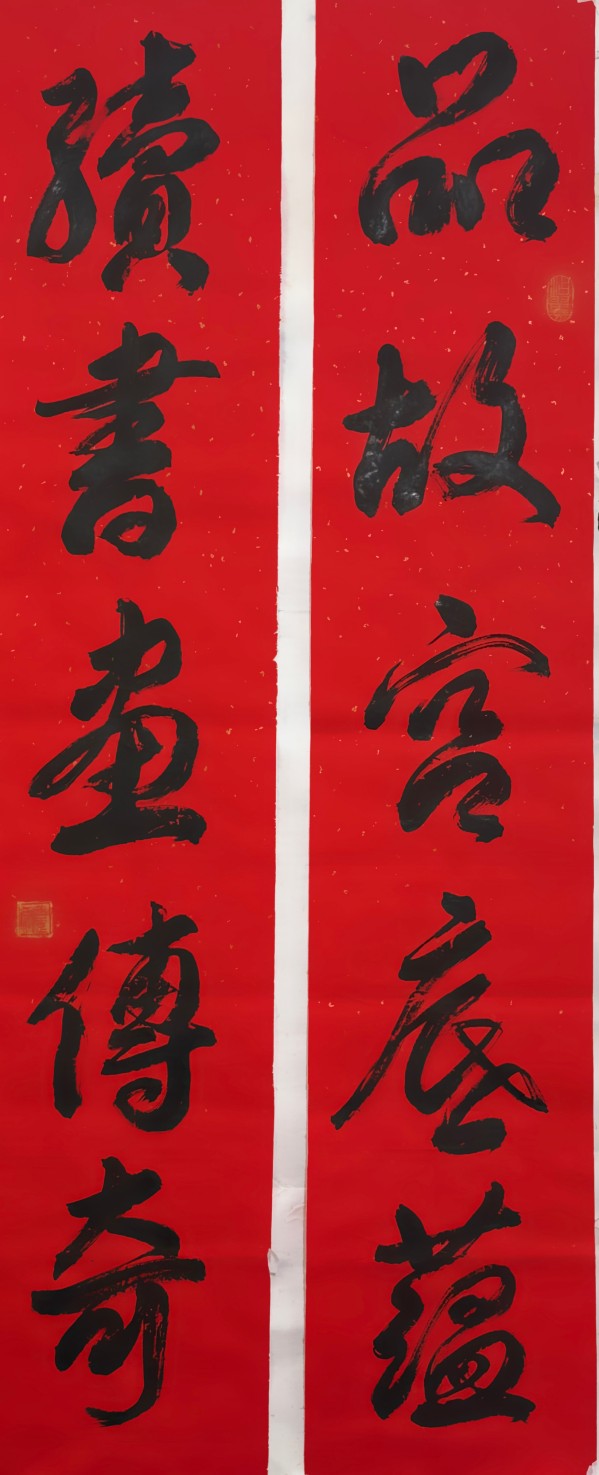 品故宫底蕴
續書畫傳奇